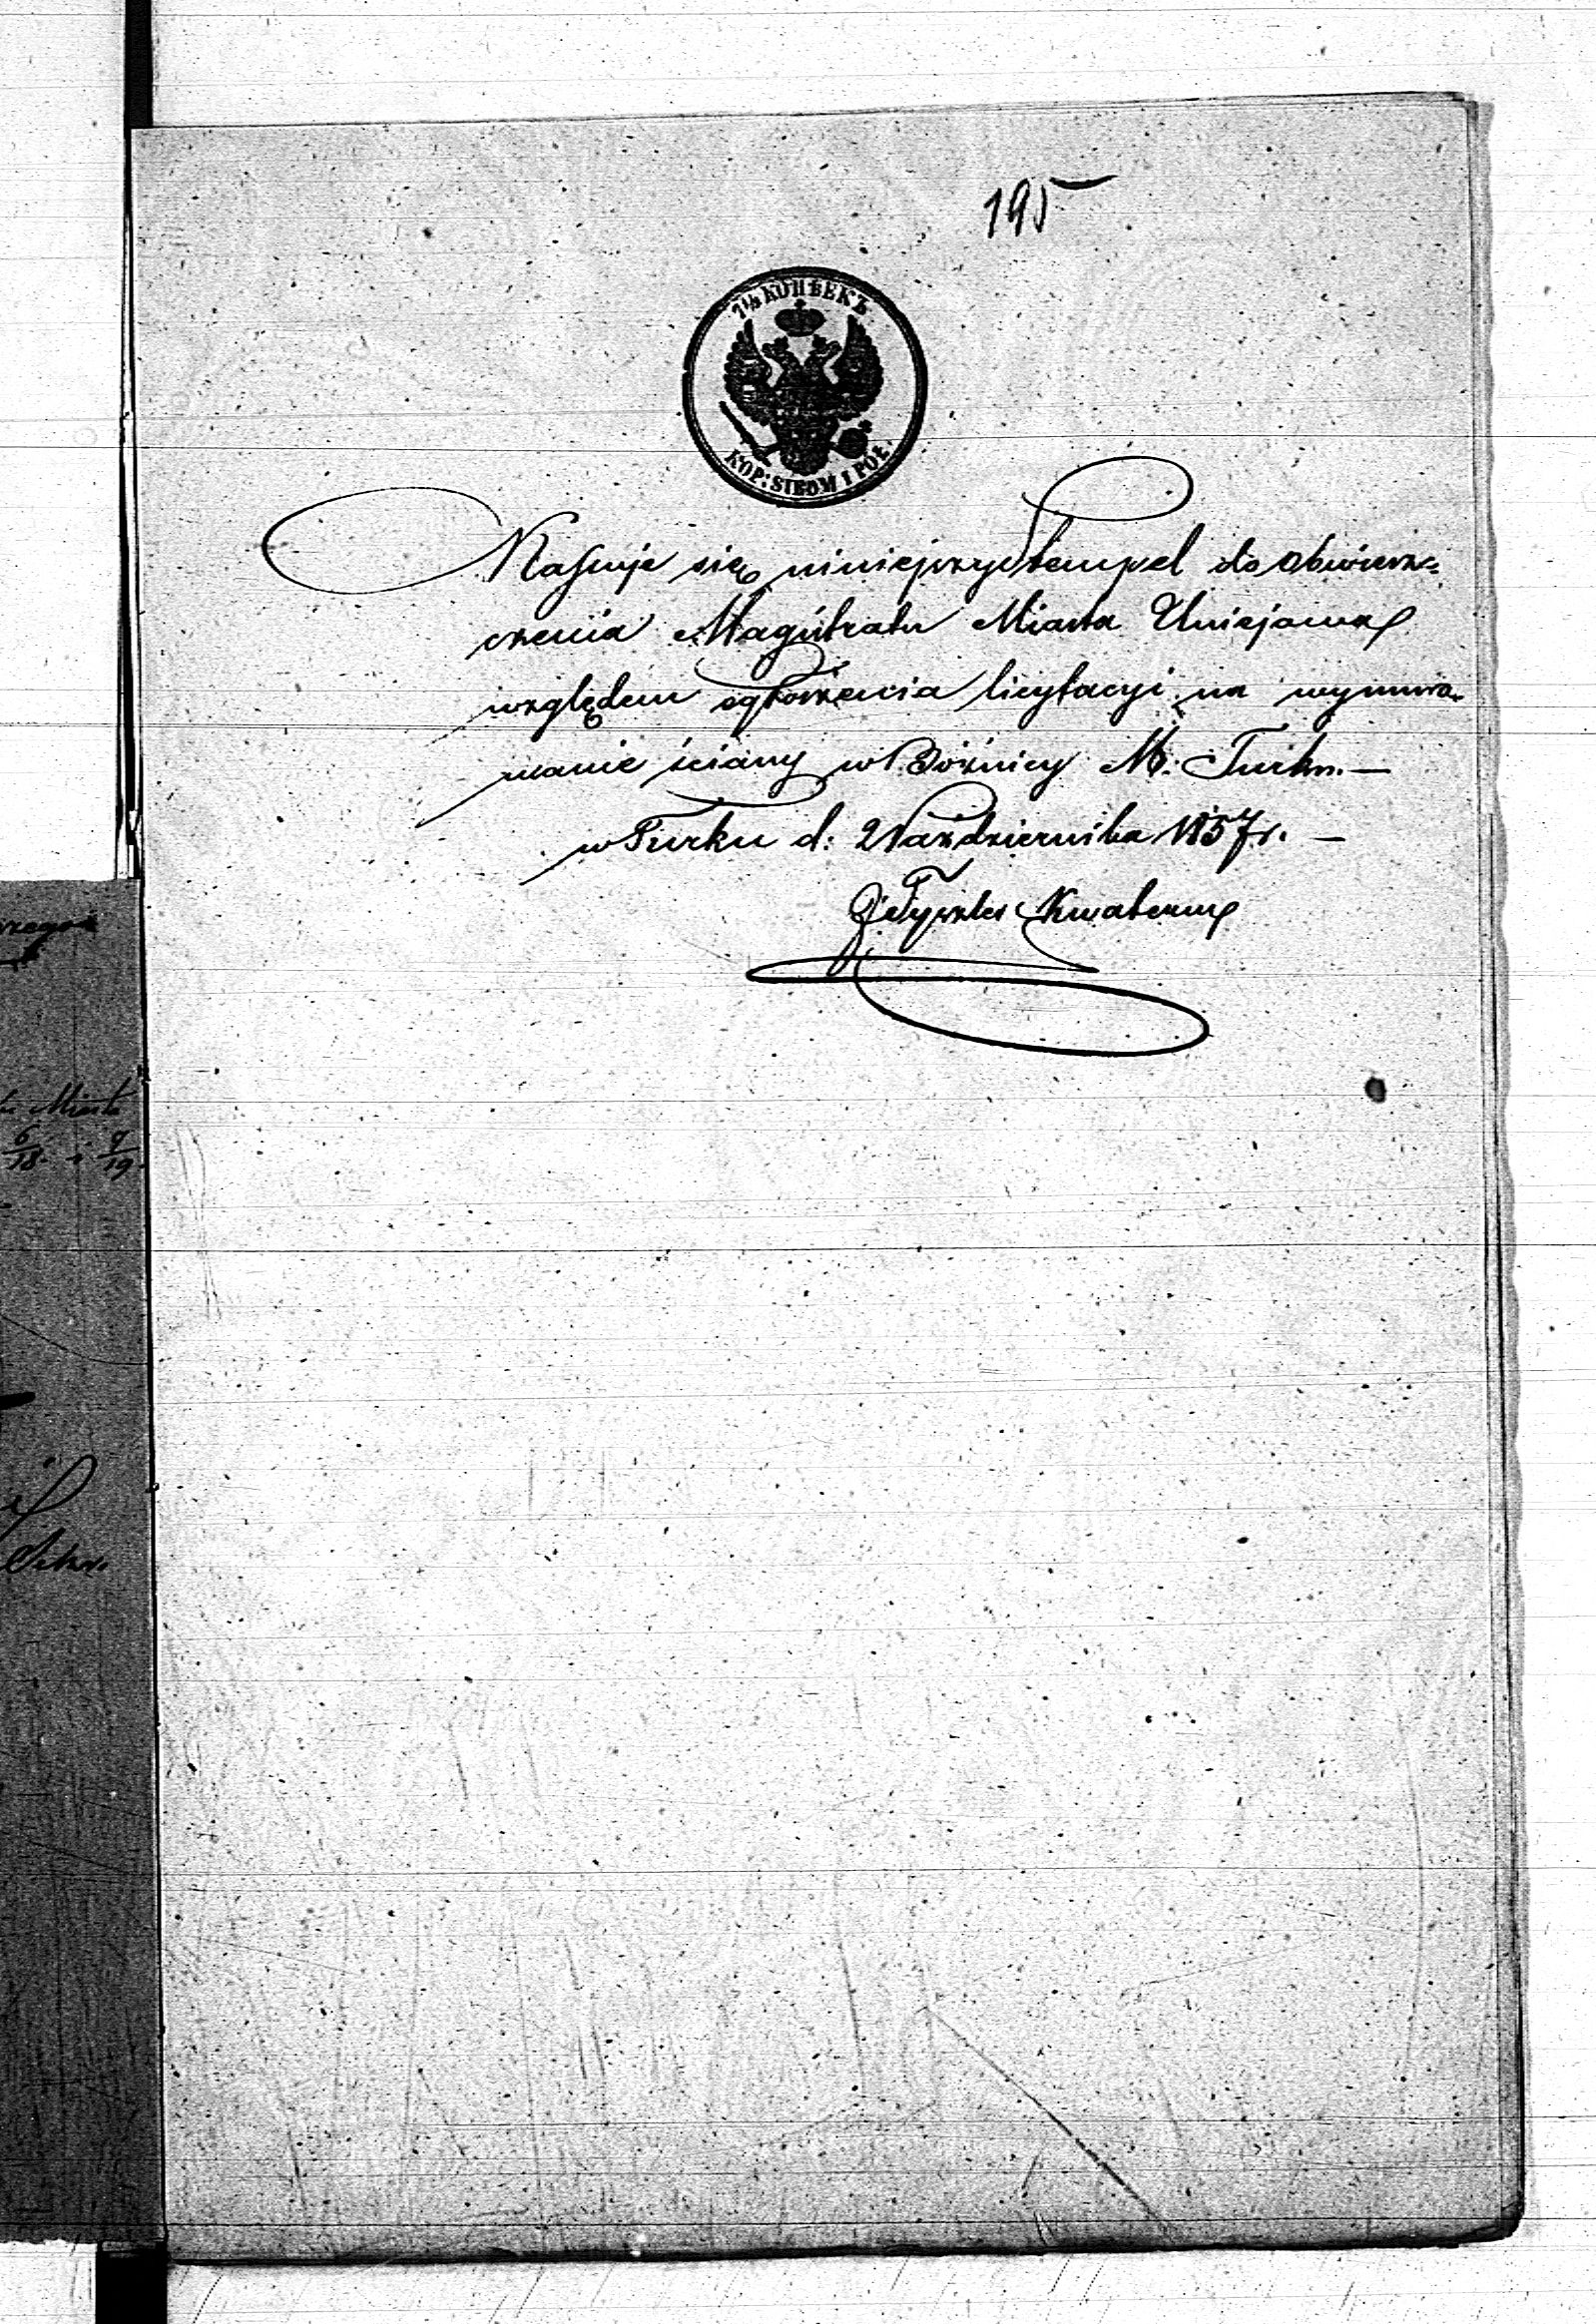 195
7½ КОПѢЕКЪ
KOP: SIEDM I PÓŁ.
Kasuje się niniejszy Stempel do obwiesz=
czenia Magistratu Miasta Uniejowa
względem ogłoszenia licytacyi na wymuro-
wanie ściany w Bóżnicy M. Turku. —
w Turku d: 2 Października 1857 r. —
Kwaterny
Miasta
6/18. i 7/19.